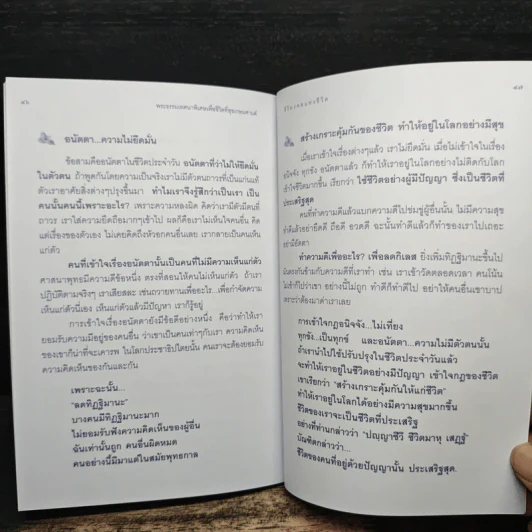 ๔๖
พระธรรมเทศนาพิเศษเพื่อชีวิตที่สุขเกษมศานต์
อนัตตา...ความไม่ยึดมั่น
ข้อสามคืออนัตตาในชีวิตประจำวัน อนัตตาที่ว่าไม่ให้ยึดมั่น
ในตัวตน ถ้าพูดกันโดยความเป็นจริงเราไม่มีตัวตนถาวรที่เป็นแก่นแท้
ตัวเราอาศัยสิ่งต่างๆปรุงขึ้นมา ทำไมเราจึงรู้สึกว่าเป็นเรา เป็น
คนนั้นคนนี้เพราะอะไร? เพราะความหลงผิด คิดว่าเรามีตัวมีตนที่
ถาวร เราใส่ความยึดถือมากๆเข้าไป ผลก็คือเราไม่เข้าใจคนอื่น คิด
แต่เรื่องของตัวเอง ไม่เคยคิดถึงหัวอกคนอื่นเลย เรากลายเป็นคนเห็น
แก่ตัว
คนที่เข้าใจเรื่องอนัตตานั้นเป็นคนที่ไม่มีความเห็นแก่ตัว
ศาสนาพุทธมีความดีข้อหนึ่ง ตรงที่สอนให้คนไม่เห็นแก่ตัว ถ้าเรา
ปฏิบัติตามจริงๆ เราเสียสละ เช่นถวายทานเพื่ออะไร...เพื่อกำจัดความ
เห็นแก่ตัวนี่เอง เห็นแก่ตัวแล้วมีปัญหา เราก็รู้อยู่
การเข้าใจเรื่องอนัตตายังมีข้อดีอย่างหนึ่ง คือว่าทำให้เรา
ยอมรับความมีอยู่ของคนอื่น ว่าเขาเป็นคนเท่าๆกับเรา ความคิดเห็น
ของเขาก็น่าที่จะเคารพ ในโลกประชาธิปไตยนั้น คนเราจะต้องยอมรับ
ความคิดเห็นของกันและกัน
เพราะฉะนั้น...
"ลดทิฏฐิมานะ"
บางคนมีทิฏฐิมานะมาก
ไม่ยอมรับฟังความคิดเห็นของผู้อื่น
ฉันเท่านั้นถูก คนอื่นผิดหมด
คนอย่างนี้มีมาแต่ในสมัยพุทธกาล
๔๗
สร้างเกราะคุ้มกันของชีวิต ทำให้อยู่ในโลกอย่างมีสุข
เมื่อเราเข้าใจเรื่องต่างๆแล้ว เราไม่ยึดมั่น เมื่อไม่เข้าใจในเรื่อง
อนิจจัง ทุกขัง อนัตตาแล้ว ก็ทำให้เราอยู่ในโลกอย่างไม่ติดกับโลก
เข้าใจชีวิตมากขึ้น เรียกว่า ใช้ชีวิตอย่างผู้มีปัญญา ซึ่งเป็นชีวิตที่
ประเสริฐสุด
คนที่ทำความดีแล้วแบกความดีไปข่มขู่ผู้อื่นนั้น ไม่มีความสุข
ทำดีแล้วอย่ายึดดี ถือดี อวดดี ฉะนั้นทำดีแล้วก็ทำของเราไปเถอะ
อย่ามีอัตตา
ทำความดีเพื่ออะไร? เพื่อลดกิเลส ยิ่งเพิ่มทิฏฐิมานะขึ้นไป
มันตรงกันข้ามกับความดีที่เราทำ เช่น เราเข้าวัดตลอดเวลา คนโน้น
ไม่เข้าก็ไปว่าเขา อย่างนี้ไม่ถูก ทำดีก็ทำดีไป อย่าให้คนอื่นเขาบาป
เพราะว่าต้องมาด่าเราเลย
การเข้าใจกฎอนิจจัง...ไม่เที่ยง
ทุกขัง...เป็นทุกข์ และอนัตตา...ความไม่มีตัวตนนั้น
ถ้าเรานำไปใช้ปรับปรุงในชีวิตประจำวันแล้ว
จะทำให้เราอยู่ในชีวิตอย่างมีปัญญา เข้าใจกฎของชีวิต
เขาเรียกว่า "สร้างเกราะคุ้มกันให้แก่ชีวิต"
ทำให้เราอยู่ในโลกได้อย่างมีความสุขมากขึ้น
ชีวิตของเราจะเป็นชีวิตที่ประเสริฐ
อย่างที่ท่านกล่าวว่า "ปญฺญาชีวี ชีวิตมาหุ เสฏฺฐํ"
บัณฑิตกล่าวว่า...
ชีวิตของคนที่อยู่ด้วยปัญญานั้น ประเสริฐสุด.